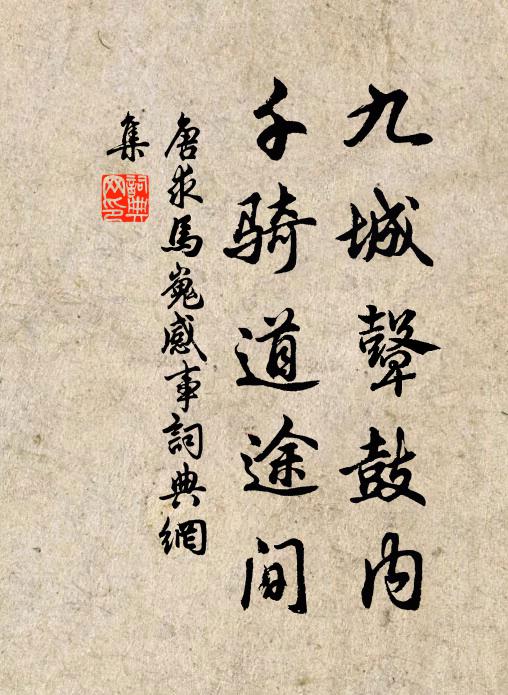 九城鼙鼓内
千骑道途间
唐求馬嵬感事詞典網
集
詞典
网印